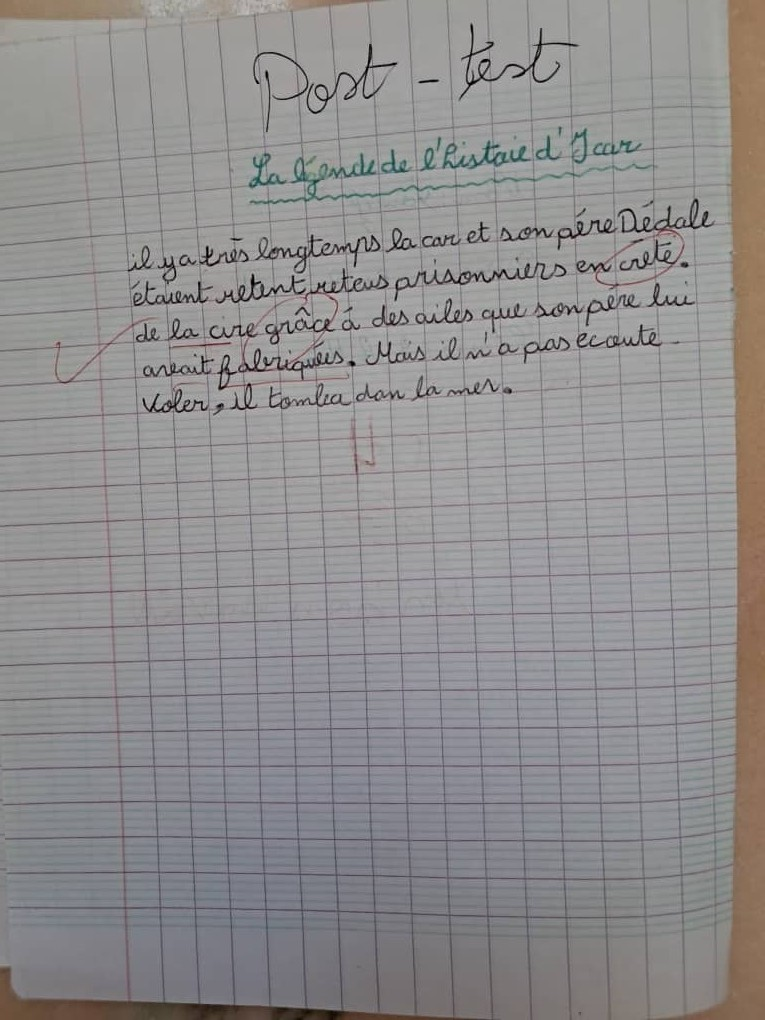 Post - test
La légende de l'histaie d'Icar
il y a très longtemps la car et son père Dédale
étaient retent reteus prisonniers en crète.
de la cire grâce à des ailes que son père lui
avait fabriquées. Mais il n'a pas ecoute
Voler, il tomba dan la mer.